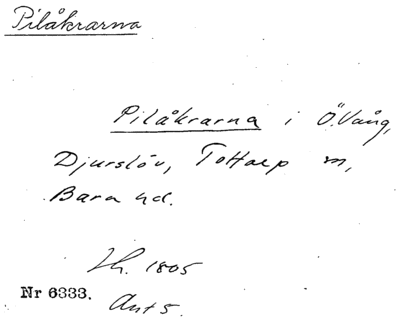 Pilåkrarna
Pilåkrarna i Ö. Vång,
Djurslöv, Tottarp m,
Bara hd.
Lh. 1805
Nr 6333. Akt 5.